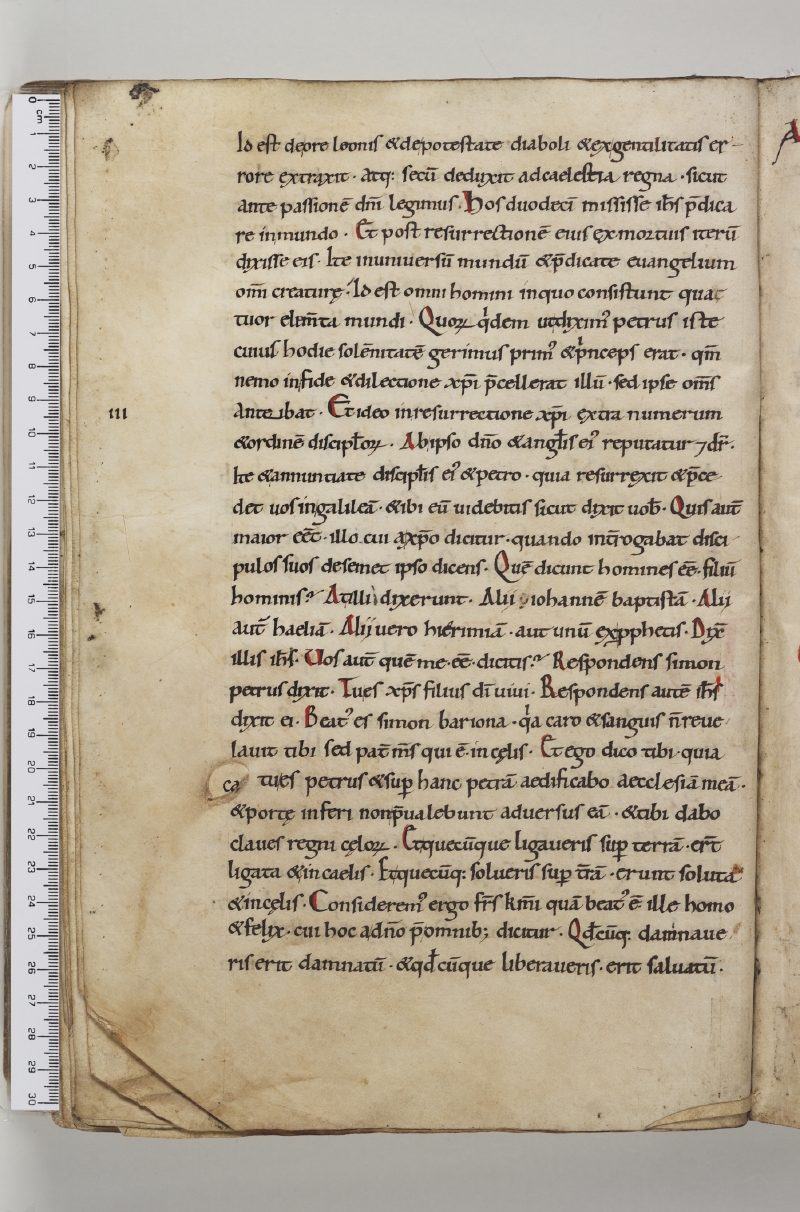 Id est de ore leonis & de potestate diaboli & ex gentilitatis er-
rore extraxit · atq: secū deduxit ad caelestia regna · sicut
ante passionē dn̄i legimus. Hos duodecī misisse ih̄s p̄dica
re in mundo · Et post resurrectionē eius ex mortuis iterū
dixisse eis. Ite in uniuersū mundū & p̄dicate euangelium
om̄i creaturę. Id est omni homini in quo consistunt quat
tuor elem̄ta mundi. Quoꝝ qͥdem ut diximꝰ petrus iste
cuius hodie solēnitatē gerimus primꝰ & pͥnceps erat · qm̄
nemo in fide & dilectione xp̄i p̄cellerat illū · sed ipse om̄s
anteibat · Et ideo in resurrectione xp̄i extra numerum
III
& ordinē discipłoꝝ · Ab ipso dn̄o & angłis eiꝰ reputatur ⁊ dr̄.
Ite & annuntiate discipłis eiꝰ & petro · quia resurrexit & p̄ce
det uos in galileā · & ibi eū uidebitis sicut dixit uob̄. Quis aut̄
maior eēt · illo cui a xp̄o dicitur · quando int̄rogabat disci
pulos suos de semet ipso dicens. Quē dicunt homines eē · filiū
hominis? At illi dixerunt. Alii iohannē baptistā. Alii
aut̄ haeliā. Alii uero hierimiā · aut unū ex pphetis. Dixē
illis ih̄s. Vos aut̄ quē me · eē · dicitis? Respondens simon
petrus dixit. Tu es xp̄s filius dī uiui. Respondens autē ih̄s
dixit ei. Beatꝰ es simon bariona · qͥa caro & sanguis n̄ reue
lauit tibi sed pat̄ m̄s qui ē · in cęlis. Et ego dico tibi · quia
ca tu es petrus & suꝑ hanc petrā aedificabo aecclesiā meā.
& portę inferi non p̄ualebunt aduersus eā · & tibi dabo
claues regni cęloꝝ. Et quecūque ligaueris suꝑ terrā · er̄t
ligata & in caelis. Et quecūq: solueris suꝑ t̄rā · erunt soluta
& in cęlis. Consideremꝰ ergo fr̄s km̄i quā beatꝰ ē ille homo
& felix · cui hoc a dn̄o p̄ omnib; dicitur. Qđcūq: damnaue
ris erit damnatū · & qđcūque liberaueris · erit saluatū.